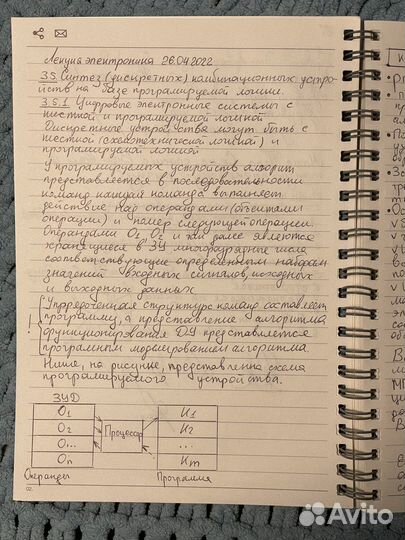 Лекция электроника 26.04.2022
3.5. Синтез (дискретных) комбинационных устро-
йств на базе програмируемой логики.
3.5.1 Цифровые электронные системы с
жесткой и програмируемой логикой
Дискретные устройства могут быть с
жесткой (схемотехнической логикой) и
програмируемой логикой
У програмируемых устройств алгоритм
представляется в последовательности
команд каждая команда выполняет
действие над операндами (объектами
операции) и номер следующей операции.
Операндами O1 O2 и так далее являются
хранящиеся в ЗУ многоразрядные числа
соответствующие определенным наборам
значений входных сигналов, исходных
и выходных данных
Упорядоченная структура команд составляет
программу, а представление алгоритма
функционирования ДУ представляется
програмным моделированием алгоритма
Ниже, на рисунке, представлена схема
програмируемого устройства.
ЗУД
O1
O2
O...
On
Процессор
K1
K2
...
Km
Операнды
Программа
02
Avito